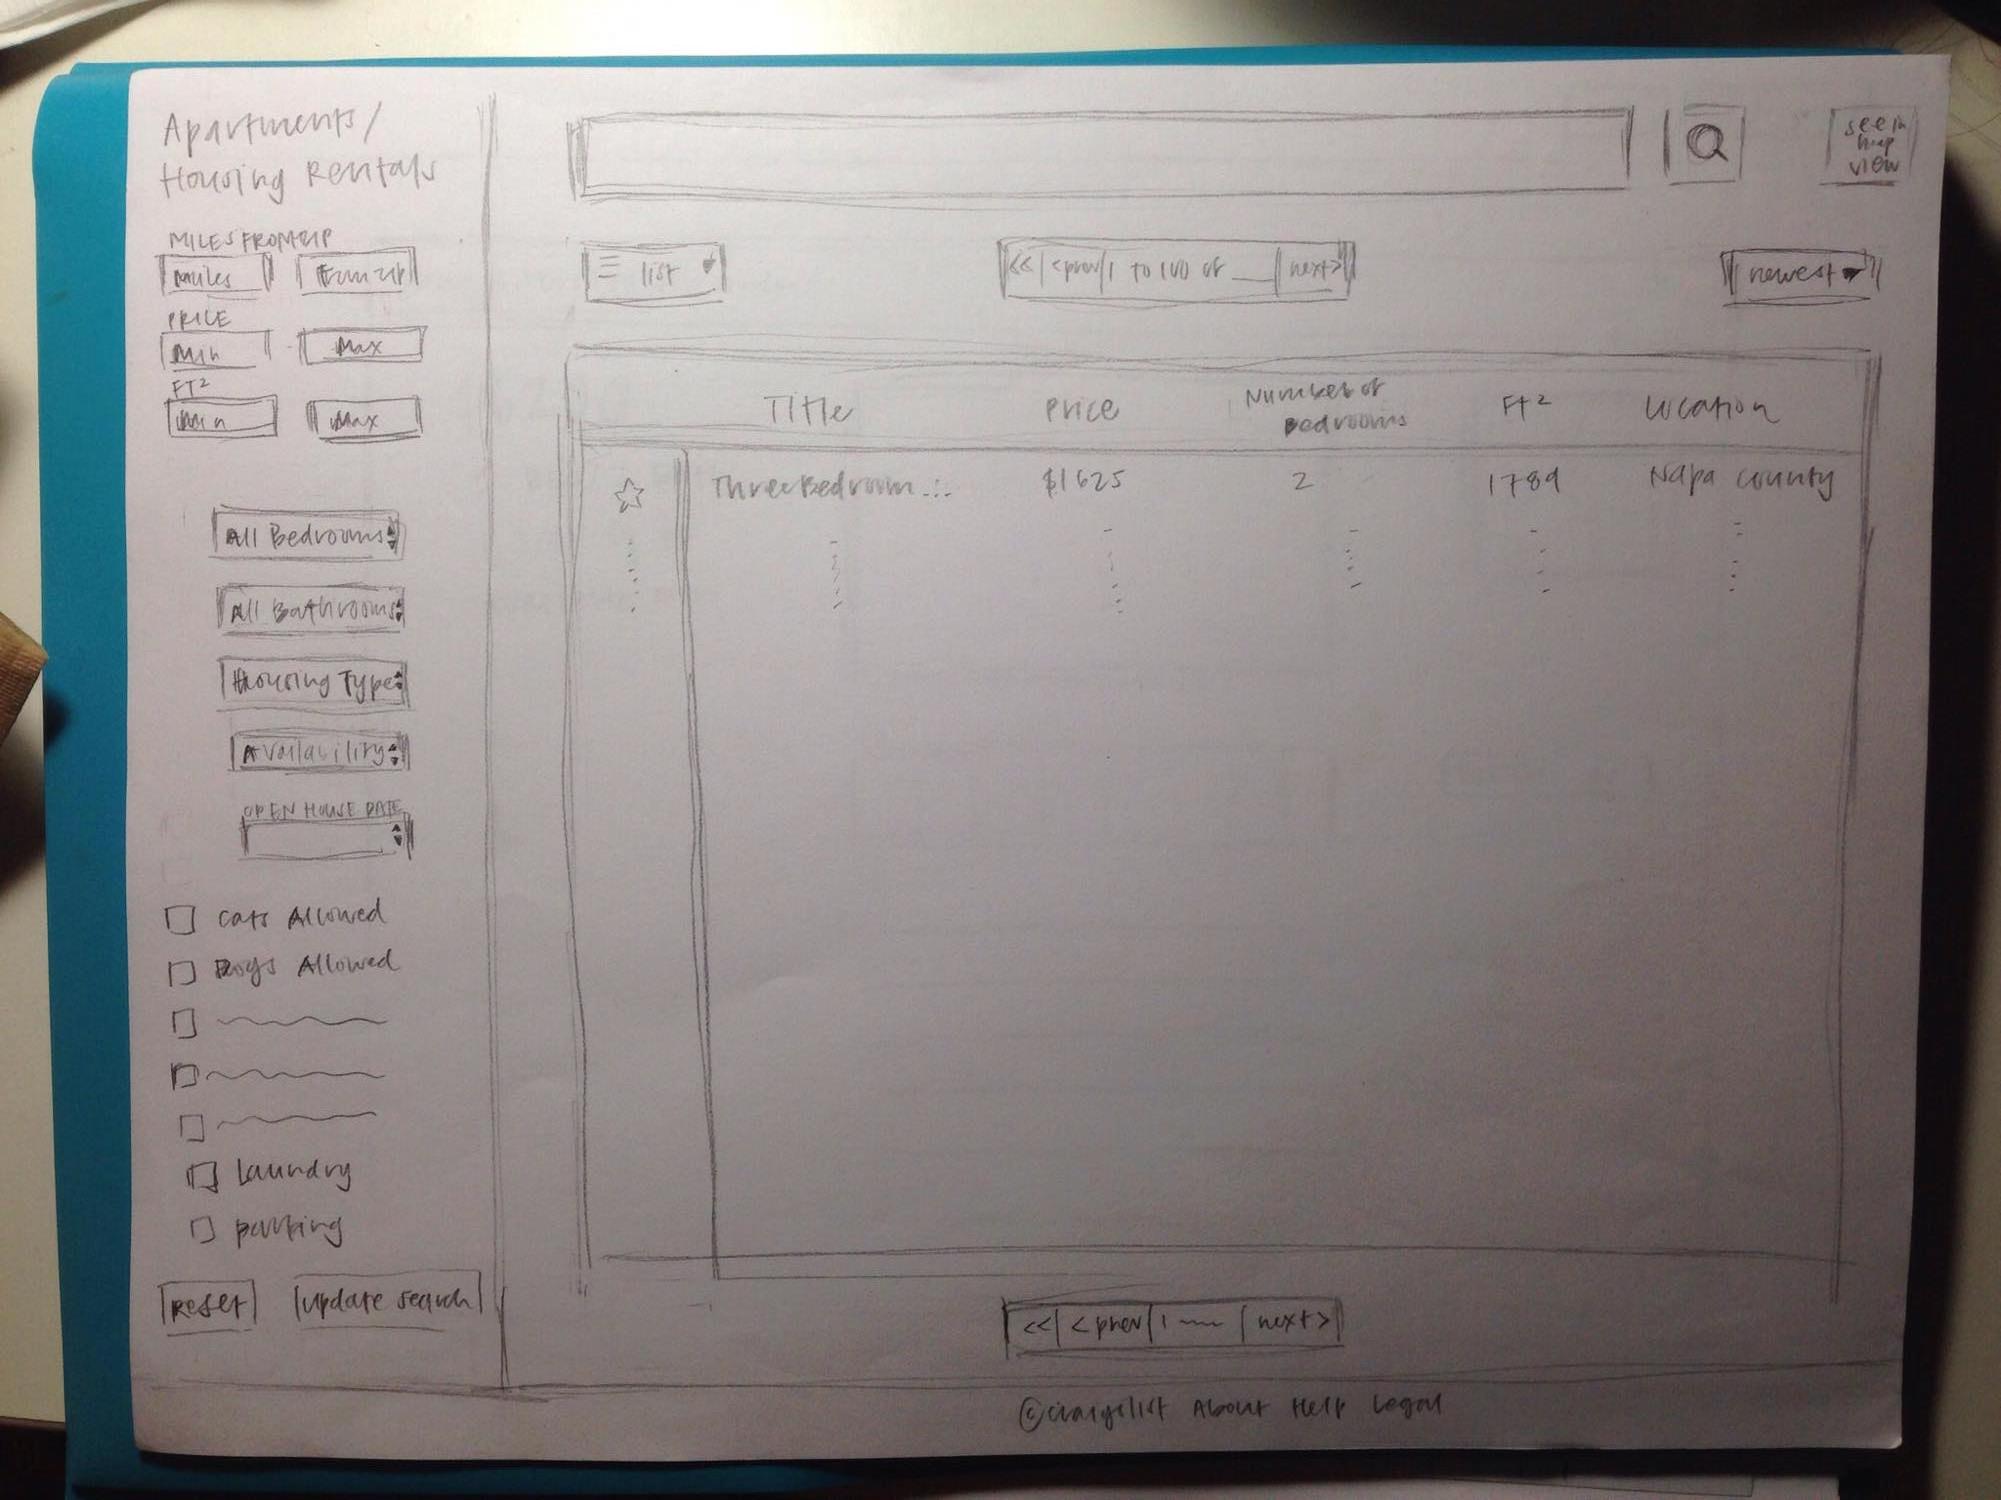 Apartments/
Housing Rentals
MILES FROM ZIP
Miles
From zip
PRICE
Min
Max
FT²
Min
Max
All Bedrooms
All Bathrooms
Housing Type
Availability
OPEN HOUSE DATE
Cats Allowed
Dogs Allowed
Laundry
parking
Reset
Update search
see in
map
view
list
<< <prev 1 to 100 of ___ next>
newest
Title Price Number of Bedrooms Ft² Location
Three Bedroom ... $1625 2 1789 Napa County
<< <prev 1 next>
©craigslist About Help Legal